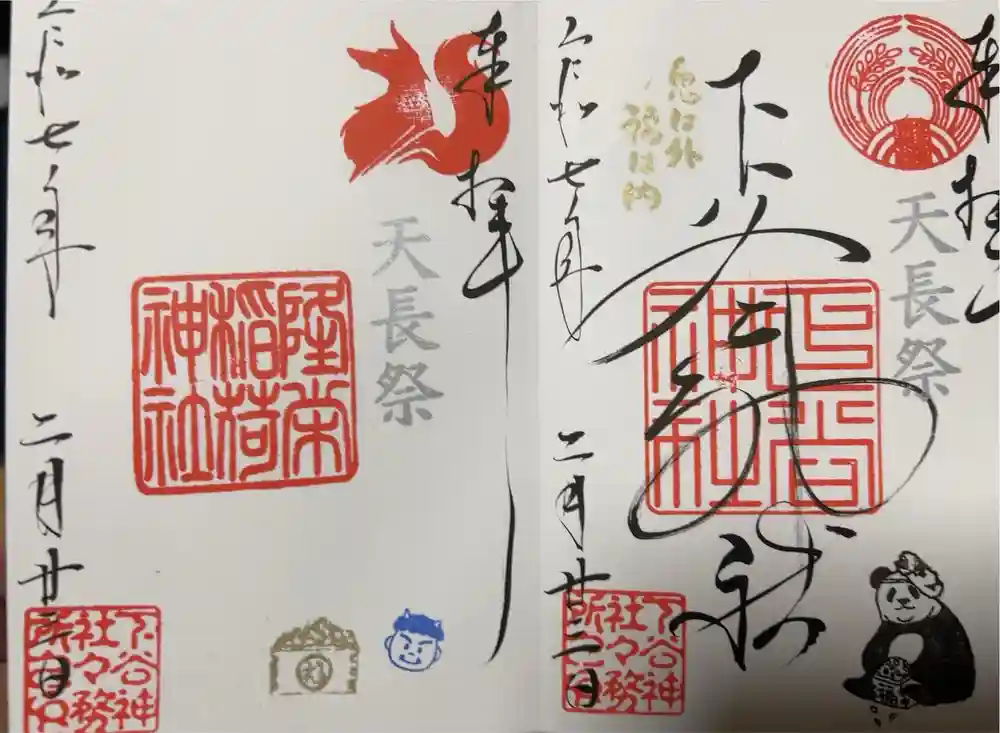 奉拝
天長祭
下谷神社
下谷神社
鬼は外
福は納
令和七年 二月廿三日
下谷神社々務所之印
奉拝
天長祭
隆栄稲荷神社
令和七年 二月廿三日
下谷神社々務所之印